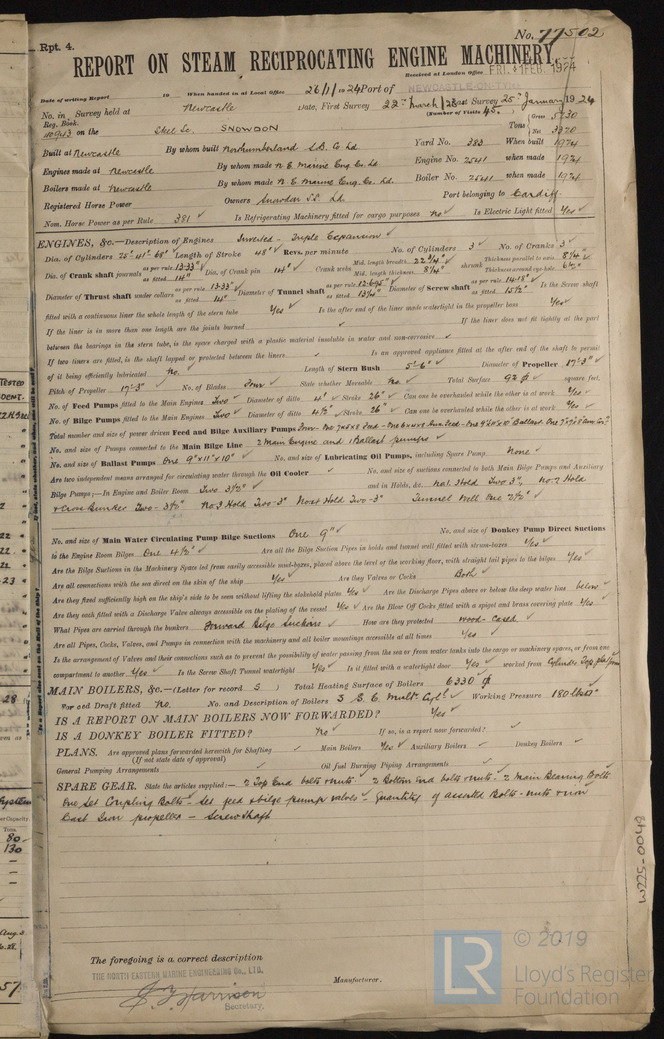 Rpt. 4.
No. 77502
REPORT ON STEAM RECIPROCATING ENGINE MACHINERY.
Received at London Office FRI. 1 FEB. 1924
Date of writing Report 19 When handed in at Local Office 26/1/1924 Port of NEWCASTLE-ON-TYNE
No. in Reg. Book. Survey held at Newcastle Date, First Survey 22nd March/23 Last Survey 25th January 1924
(Number of Visits 45)
on the Steel Sc. SNOWDON Tons Gross 5730 Net 3320
Built at Newcastle By whom built Northumberland S.B. Co Ld Yard No. 383 When built 1924
Engines made at Newcastle By whom made N. E. Marine Eng. Co. Ld. Engine No. 2541 when made 1924
Boilers made at Newcastle By whom made N. E. Marine Eng. Co. Ld. Boiler No. 2541 when made 1924
Registered Horse Power Owners Snowdon S.S. Ld. Port belonging to Cardiff
Nom. Horse Power as per Rule 381 Is Refrigerating Machinery fitted for cargo purposes No Is Electric Light fitted Yes
ENGINES, &c.—Description of Engines Inverted - Triple Expansion
Dia. of Cylinders 25" 41" 68" Length of Stroke 48" Revs. per minute No. of Cylinders 3 No. of Cranks 3
Dia. of Crank shaft journals as per rule 13.33" as fitted 14" Dia. of Crank pin 14" Crank webs Mid. length breadth 22 3/4" Mid. length thickness 8 1/4" shrunk Thickness parallel to axis 8 1/4" Thickness around eye-hole 6 1/2"
Diameter of Thrust shaft under collars as per rule 13.33" as fitted 14" Diameter of Tunnel shaft as per rule 12.695" as fitted 13 1/4" Diameter of Screw shaft as per rule 14.18" as fitted 15 1/2" Is the Screw shaft
fitted with a continuous liner the whole length of the stern tube Yes Is the after end of the liner made watertight in the propeller boss Yes
If the liner is in more than one length are the joints burned If the liner does not fit tightly at the part
between the bearings in the stern tube, is the space charged with a plastic material insoluble in water and non-corrosive
If two liners are fitted, is the shaft lapped or protected between the liners Is an approved appliance fitted at the after end of the shaft to permit
of it being efficiently lubricated No. Length of Stern Bush 5'-6" Diameter of Propeller 17'-3"
Pitch of Propeller 17'-3" No. of Blades Four State whether Moveable No. Total Surface 92 square feet.
No. of Feed Pumps fitted to the Main Engines Two Diameter of ditto 4" Stroke 26" Can one be overhauled while the other is at work Yes
No. of Bilge Pumps fitted to the Main Engines Two Diameter of ditto 4 1/2" Stroke 26" Can one be overhauled while the other is at work Yes
Total number and size of power driven Feed and Bilge Auxiliary Pumps
No. and size of Pumps connected to the Main Bilge Line 2 Main Engine and 1 Ballast pumps
No. and size of Ballast Pumps One 9"x11"x10" No. and size of Lubricating Oil Pumps, including Spare Pump None
Are two independent means arranged for circulating water through the Oil Cooler No. and size of suctions connected to both Main Bilge Pumps and Auxiliary
Bilge Pumps;—In Engine and Boiler Room Two 3 1/2" and in Holds, &c. No1. Hold Two 3", No: 2 Hold
& Cross Bunker Two- 3 1/2" No3 Hold Two-3" No4 Hold Two-3" Tunnel Well One 2 1/2"
No. and size of Main Water Circulating Pump Bilge Suctions One 9" No. and size of Donkey Pump Direct Suctions
to the Engine Room Bilges One 4 1/2" Are all the Bilge Suction Pipes in holds and tunnel well fitted with strum-boxes Yes
Are the Bilge Suctions in the Machinery Space led from easily accessible mud-boxes, placed above the level of the working floor, with straight tail pipes to the bilges Yes
Are all connections with the sea direct on the skin of the ship Yes Are they Valves or Cocks Both
Are they fixed sufficiently high on the ship's side to be seen without lifting the stokehold plates Yes Are the Discharge Pipes above or below the deep water line below
Are they each fitted with a Discharge Valve always accessible on the plating of the vessel Yes Are the Blow Off Cocks fitted with a spigot and brass covering plate Yes
What Pipes are carried through the bunkers Forward Bilge Suctions How are they protected wood-cased
Are all Pipes, Cocks, Valves, and Pumps in connection with the machinery and all boiler mountings accessible at all times Yes
Is the arrangement of Valves and their connections such as to prevent the possibility of water passing from the sea or from water tanks into the cargo or machinery spaces, or from one
compartment to another Yes Is the Screw Shaft Tunnel watertight Yes Is it fitted with a watertight door Yes worked from Cylinder Top platform
MAIN BOILERS, &c.—(Letter for record S) Total Heating Surface of Boilers 6330
Forced Draft fitted No. No. and Description of Boilers 3 S. E. Mult. Cyl. Working Pressure 180 lbs
IS A REPORT ON MAIN BOILERS NOW FORWARDED? Yes
IS A DONKEY BOILER FITTED? No If so, is a report now forwarded?
PLANS. Are approved plans forwarded herewith for Shafting Main Boilers Yes Auxiliary Boilers Donkey Boilers
(If not state date of approval)
General Pumping Arrangements Oil fuel Burning Piping Arrangements
SPARE GEAR. State the articles supplied:— 2 Top End bolts & nuts. 2 Bottom End bolts & nuts. 2 Main Bearing Bolts
One Set Coupling Bolts - Set feed & bilge pump valves - Quantity of assorted Bolts - nuts & iron
Cast Iron propeller - Screw Shaft
The foregoing is a correct description
THE NORTH EASTERN MARINE ENGINEERING Co., LTD.
Harrison
Secretary.
Manufacturer.
W225-0049
LR © 2019
Lloyd's Register
Foundation